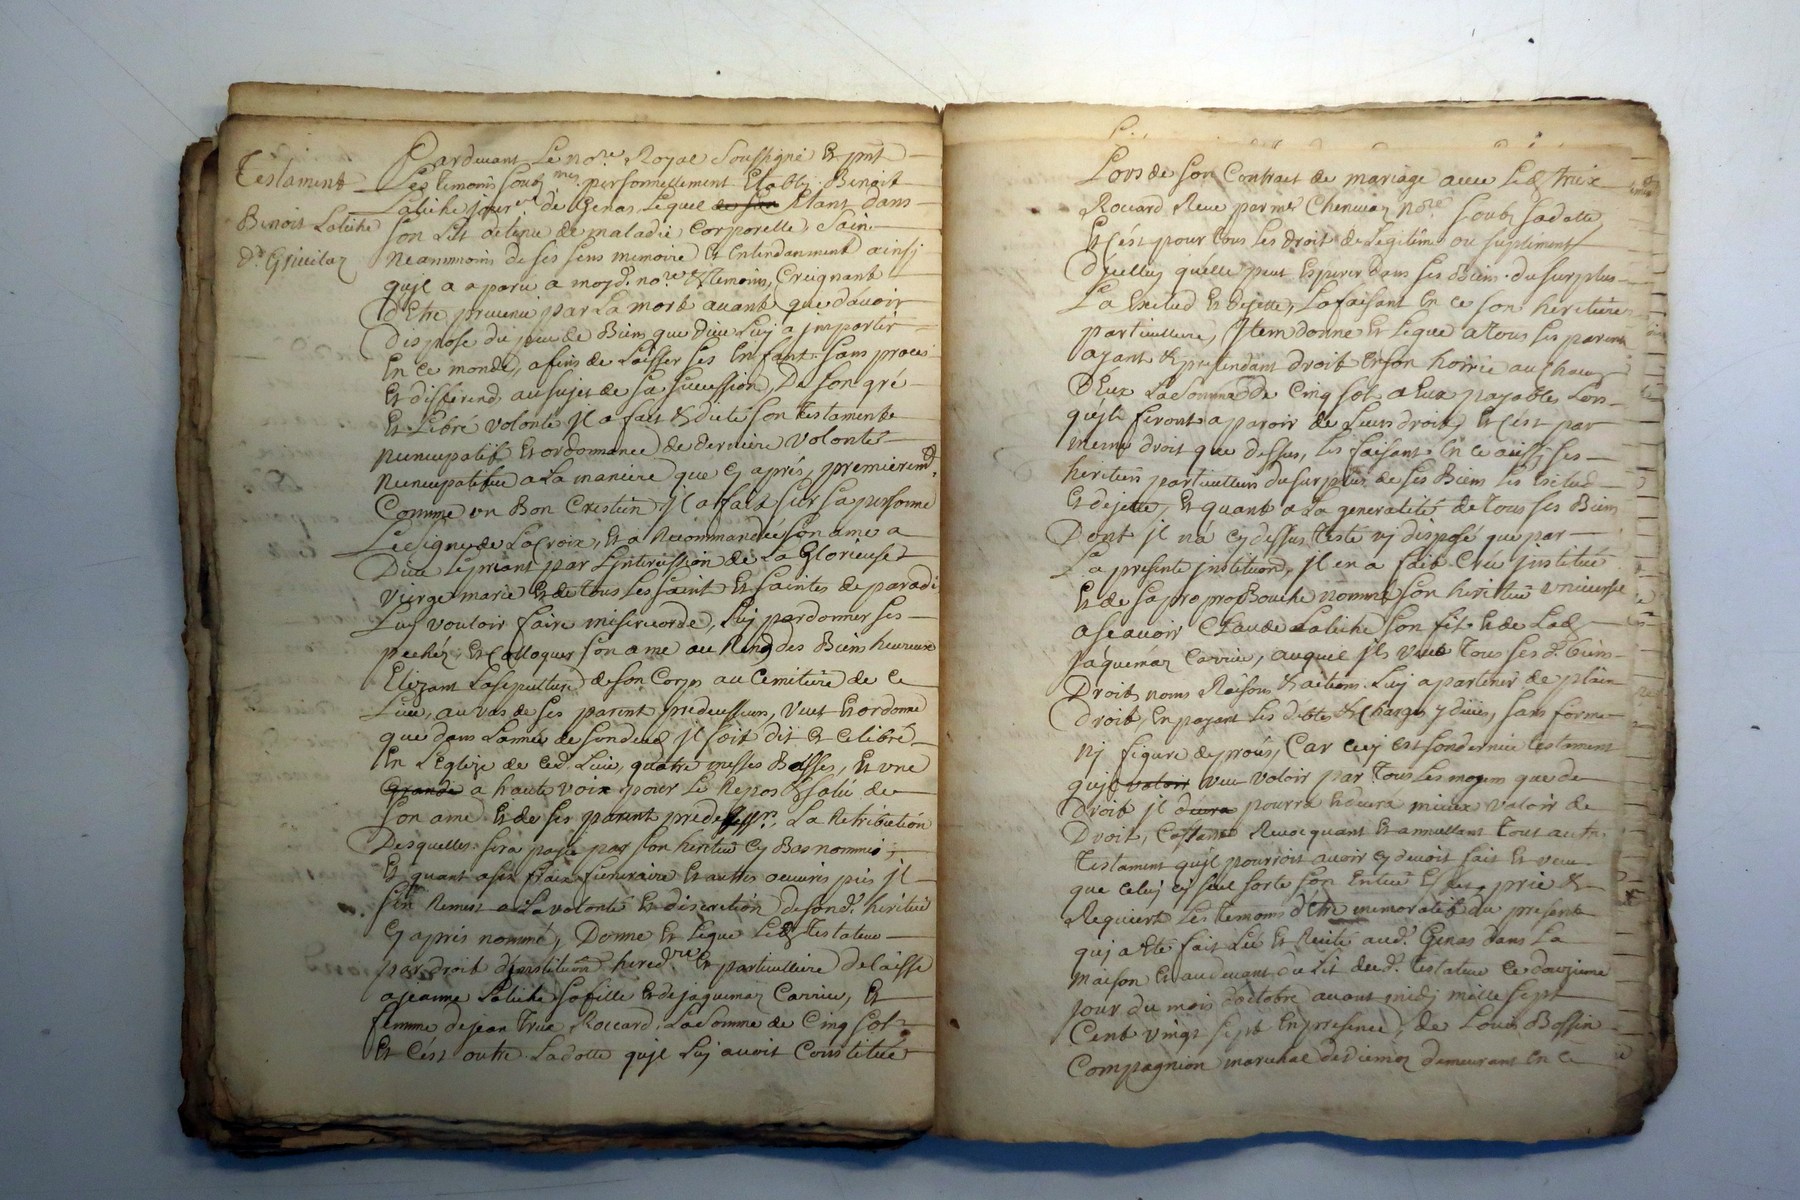 Testament
Benoit Laliche
Pardevant Le no.re Royal soussigné Et pnt
Les temoins soub nes personnellement Etably Benoit
Laliche de Genas Lequel de son Etant dans
son Lit detenu de maladie Corporelle, sain
Neammoins de ses sens memoire Et Entendanment ainsj
qujl a a paru a moyd. no.re & temoins, Creignant
D'Etre prevenu par La mort avant que d'avoir
Dispose du peu de Biens que dieu Luy a jmpartir
En ce monde, afins de Laisser ses Enfant sans proces
Et différend au sujet de sa sucession, De son gré
Et Libre volonté jl a fait & dicté son testamente
nuncupatif Et ordonnance de derniere volonté
nuncupatifve a La maniere que cy aprés, premieremt
Comme un Bon Crestien jl a fait sur sa personne
Le signe de La Croix, Et a Recommandée son ame a
Dieu Le priant par L'intercission de La Glorieuse
vierge marie Et de tous Les saint Et saintes de paradi
Luy vouloir faire misericorde, Luy pardonner ses
pechéz Et Colloquer son ame au Rang des Biens heureux
Elizant La sepulture de son Corps au Cemitiere de ce
Lieu, au vas de ses parent predecesseurs, veut Et ordonne
que dans Lannée de son deced jl soit dit Et celibré
En L'Eglize de ced. Lieu, quatre messes Basses, Et une
Grande a haute voix pour Le Repos & salu de
son ame Et de ses parent predecessr. La Retribution
Desquelles sera payée par son heritier cy Bas nommé,
Et quant a ses fraix funeraire Et autres oeuvres pies jl
s'en Remest a La volonté Et discretion de sond. heritier
Cy aprés nommé, Donne Et Legue Led testateur
par droit d'institution Et particulliere delaisse
a jeanne Laliche sa fille Et de jaquemaz Carrier, Et
femme de jean Trux Roccard, La somme de Cinq sols
Et C'est outre La dotte qujl Luy avoit Constituée
Lors de son Contract de mariage avec Led trux
Roccard Receu par me no.re soub sa datte
Et C'est pour tous Les droits de Legitime ou supliment
d'icelluy qu'elle peut Esperer dans ses Biens du surplus
La Exclud Et dejette, La faisant En ce son heritiere
particulliere, Jtem donne Et Legue a Tous ses parents
ayant & pretendant droit En son hoirie au chacun
D'Eux La somme de Cinq sols a Eux payables Lors
qujls feront aparoir de Leurs droit, Et C'est par
meme droit que dessus, Les faisant En ce aussj ses
heritiers particulliers du surplus de ses Biens Les Exclud
Et dejette, Et quant a La generalité de Tous ses Biens
Dont jl n'a cy dessus Testé nj disposé que par
La presente jnstitution, jl en a fait Creé jnstitué
Et de sa propre Bouche nommé son heritier universel
a seavoir Claude Laliche son fils Et de Lad
jaquemaz Carrier, auquel jls veut Tous ses d. biens
Droits noms Raisons & actions Luy apartenir de plain
droit, En payant Les debtes & Charges y düies, sans forme
nj figure de procés, Car cecy est son dernier testament
qujl valoir veut valoir par Tous Les moyens que de
droit jl devra pourra Et devra mieux valoir de
Droit, Cassant Revoquant Et annullant Tout autre
testament qujl pourroit avoir cy devant fait Et veut
que Celuy cy seul sorte son Entier Effet, prie &
Requiert Les temoins d'Etre memoratif du present
quj a Eté fait Leu Et Recité aud. Genas dans La
maison Et au devant du Lit dud. testateur Ce douzieme
jour du mois d'octobre avant midj mille sept
Cent vingt sept En presence de Louis Bossin
Compagnion marechal de demeurant En Ce